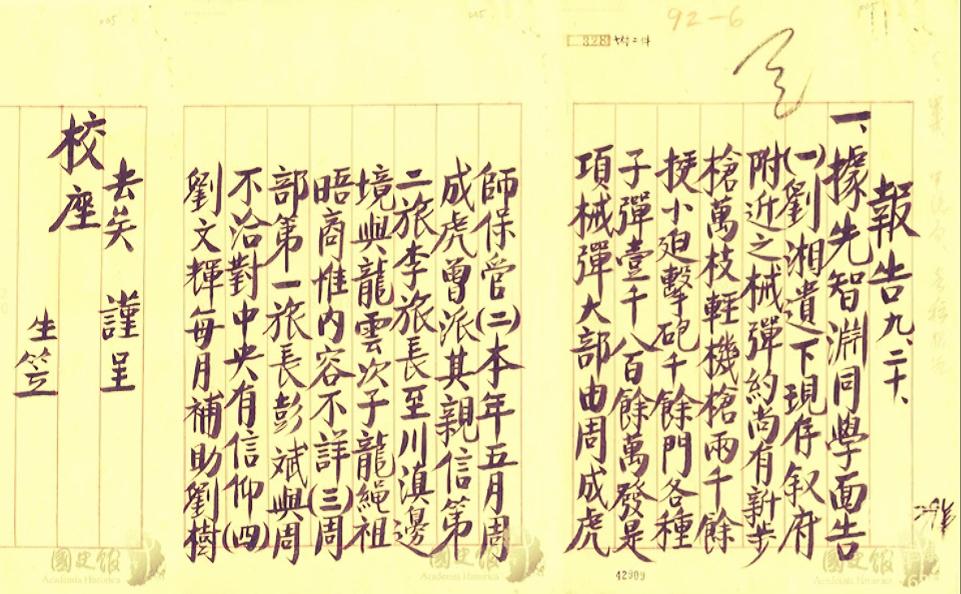 92-6
328
報告 九、二十、
一、據先智淵同學面告
(一)劉湘遺下現存叙府
附近之械彈約尚有新步
槍萬枝輕機槍兩千餘
挺小迫擊砲千餘門各種
子彈壹千八百餘萬發是
項械彈大部由周成虎
42909
師保管(二)本年五月周
成虎曾派其親信第
二旅李旅長至川滇邊
境與龍雲次子龍繩祖
晤商惟內容不詳(三)周
部第一旅長彭斌與周
不洽對中央有信仰(四)
劉文輝每月補助劉樹
去矣 謹呈
校座
生笠
國史館
Academia Historica
國史館
Academia Historica
國史館
Academia Historica